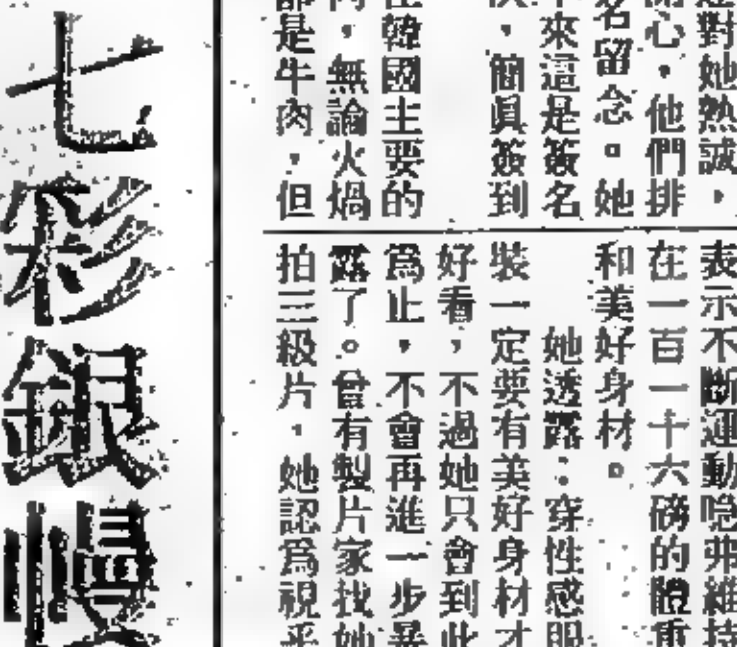 對她熱誠，
開心，他們排
名留念。她
來這是簽名
，簡眞簽到
在韓國主要的
肉，無論火煱
都是牛肉，但
表示不斷運動唸弗維持
在一百一十六磅的體重
和美好身材。
她透露：穿性感服
裝一定要有美好身材才
好看，不過她只會到此
爲止，不會再進一步暴
露了。曾有製片家找她
拍三級片，她認爲視乎
七彩銀幔